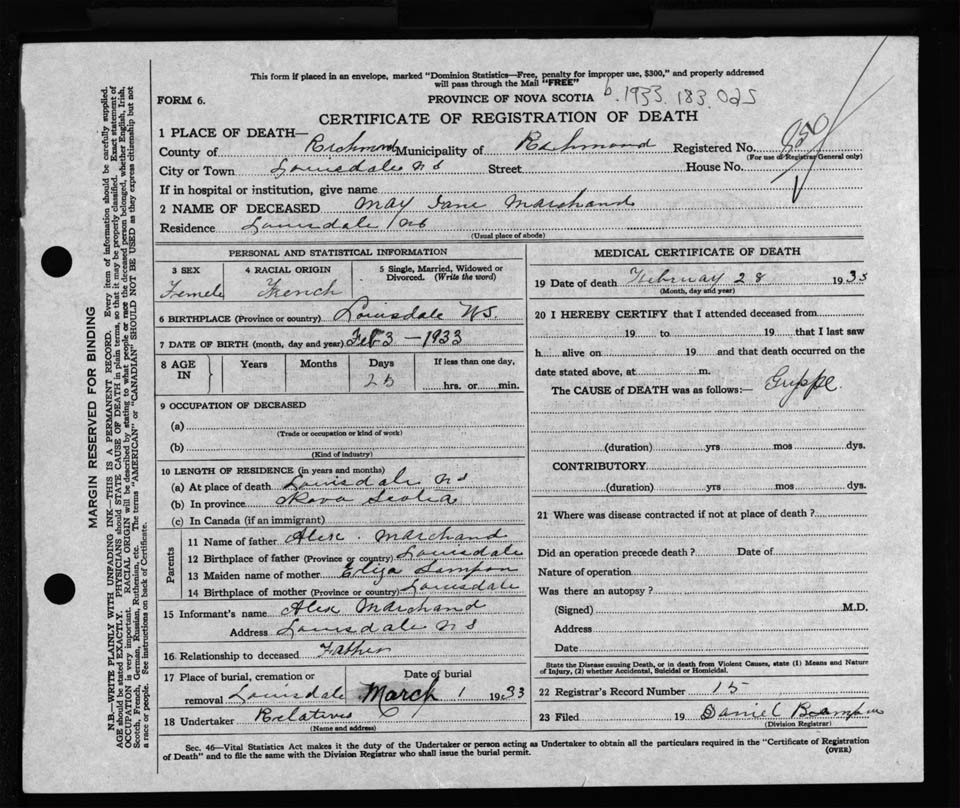 This form if placed in an envelope, marked "Dominion Statistics—Free, penalty for improper use, $300," and properly addressed
will pass through the Mail "FREE"
FORM 6.
PROVINCE OF NOVA SCOTIA
b.1933.183.025
CERTIFICATE OF REGISTRATION OF DEATH
1 PLACE OF DEATH—
County of Richmond Municipality of Richmond Registered No.
(For use of Registrar General only)
City or Town Louisdale N S Street House No.
If in hospital or institution, give name
2 NAME OF DECEASED May Jane Marchand
Residence Louisdale
(Usual place of abode)
PERSONAL AND STATISTICAL INFORMATION
3 SEX 4 RACIAL ORIGIN 5 Single, Married, Widowed or
Divorced. (Write the word)
Female French
6 BIRTHPLACE (Province or country) Louisdale NS.
7 DATE OF BIRTH (month, day and year) Feb 3 — 1933
8 AGE IN Years Months Days If less than one day,
25 hrs. or min.
9 OCCUPATION OF DECEASED
(a)
(Trade or occupation or kind of work)
(b)
(Kind of industry)
10 LENGTH OF RESIDENCE (in years and months)
(a) At place of death Louisdale N S
(b) In province Nova Scotia
(c) In Canada (if an immigrant)
Parents
11 Name of father Alex. Marchand
12 Birthplace of father (Province or country) Louisdale
13 Maiden name of mother Eliza Sampson
14 Birthplace of mother (Province or country) Louisdale
15 Informant's name Alex Marchand
Address Louisdale N S
16 Relationship to deceased Father
17 Place of burial, cremation or Date of burial
removal Louisdale March 1 1933
18 Undertaker Relatives
(Name and address)
MEDICAL CERTIFICATE OF DEATH
19 Date of death February 28 1933
(Month, day and year)
20 I HEREBY CERTIFY that I attended deceased from
19 to 19 that I last saw
h alive on 19 and that death occurred on the
date stated above, at m.
The CAUSE of DEATH was as follows:— Grippe.
(duration) yrs mos dys.
CONTRIBUTORY
(duration) yrs mos dys.
21 Where was disease contracted if not at place of death?
Did an operation precede death? Date of
Nature of operation
Was there an autopsy?
(Signed) M.D.
Address
Date
State the Disease causing Death, or in death from Violent Causes, state (1) Means and Nature
of Injury, (2) whether Accidental, Suicidal or Homicidal.
22 Registrar's Record Number 15
23 Filed 19 Daniel
(Division Registrar)
Sec. 46—Vital Statistics Act makes it the duty of the Undertaker or person acting as Undertaker to obtain all the particulars required in the "Certificate of Registration
of Death" and to file the same with the Division Registrar who shall issue the burial permit.
(OVER)
MARGIN RESERVED FOR BINDING
N.B.—WRITE PLAINLY WITH UNFADING INK—THIS IS A PERMANENT RECORD. Every item of information should be carefully supplied.
AGE should be stated EXACTLY. PHYSICIANS should STATE CAUSE OF DEATH in plain terms, so that it may be properly classified. Exact statement of
OCCUPATION is very important. RACIAL ORIGIN will be described by stating to what people or race the deceased person belonged, whether English, Irish,
Scotch, French, German, Russian, Ruthenian, etc. The terms "AMERICAN" or "CANADIAN" SHOULD NOT BE USED as they express citizenship but not
a race or people. See instructions on back of Certificate.